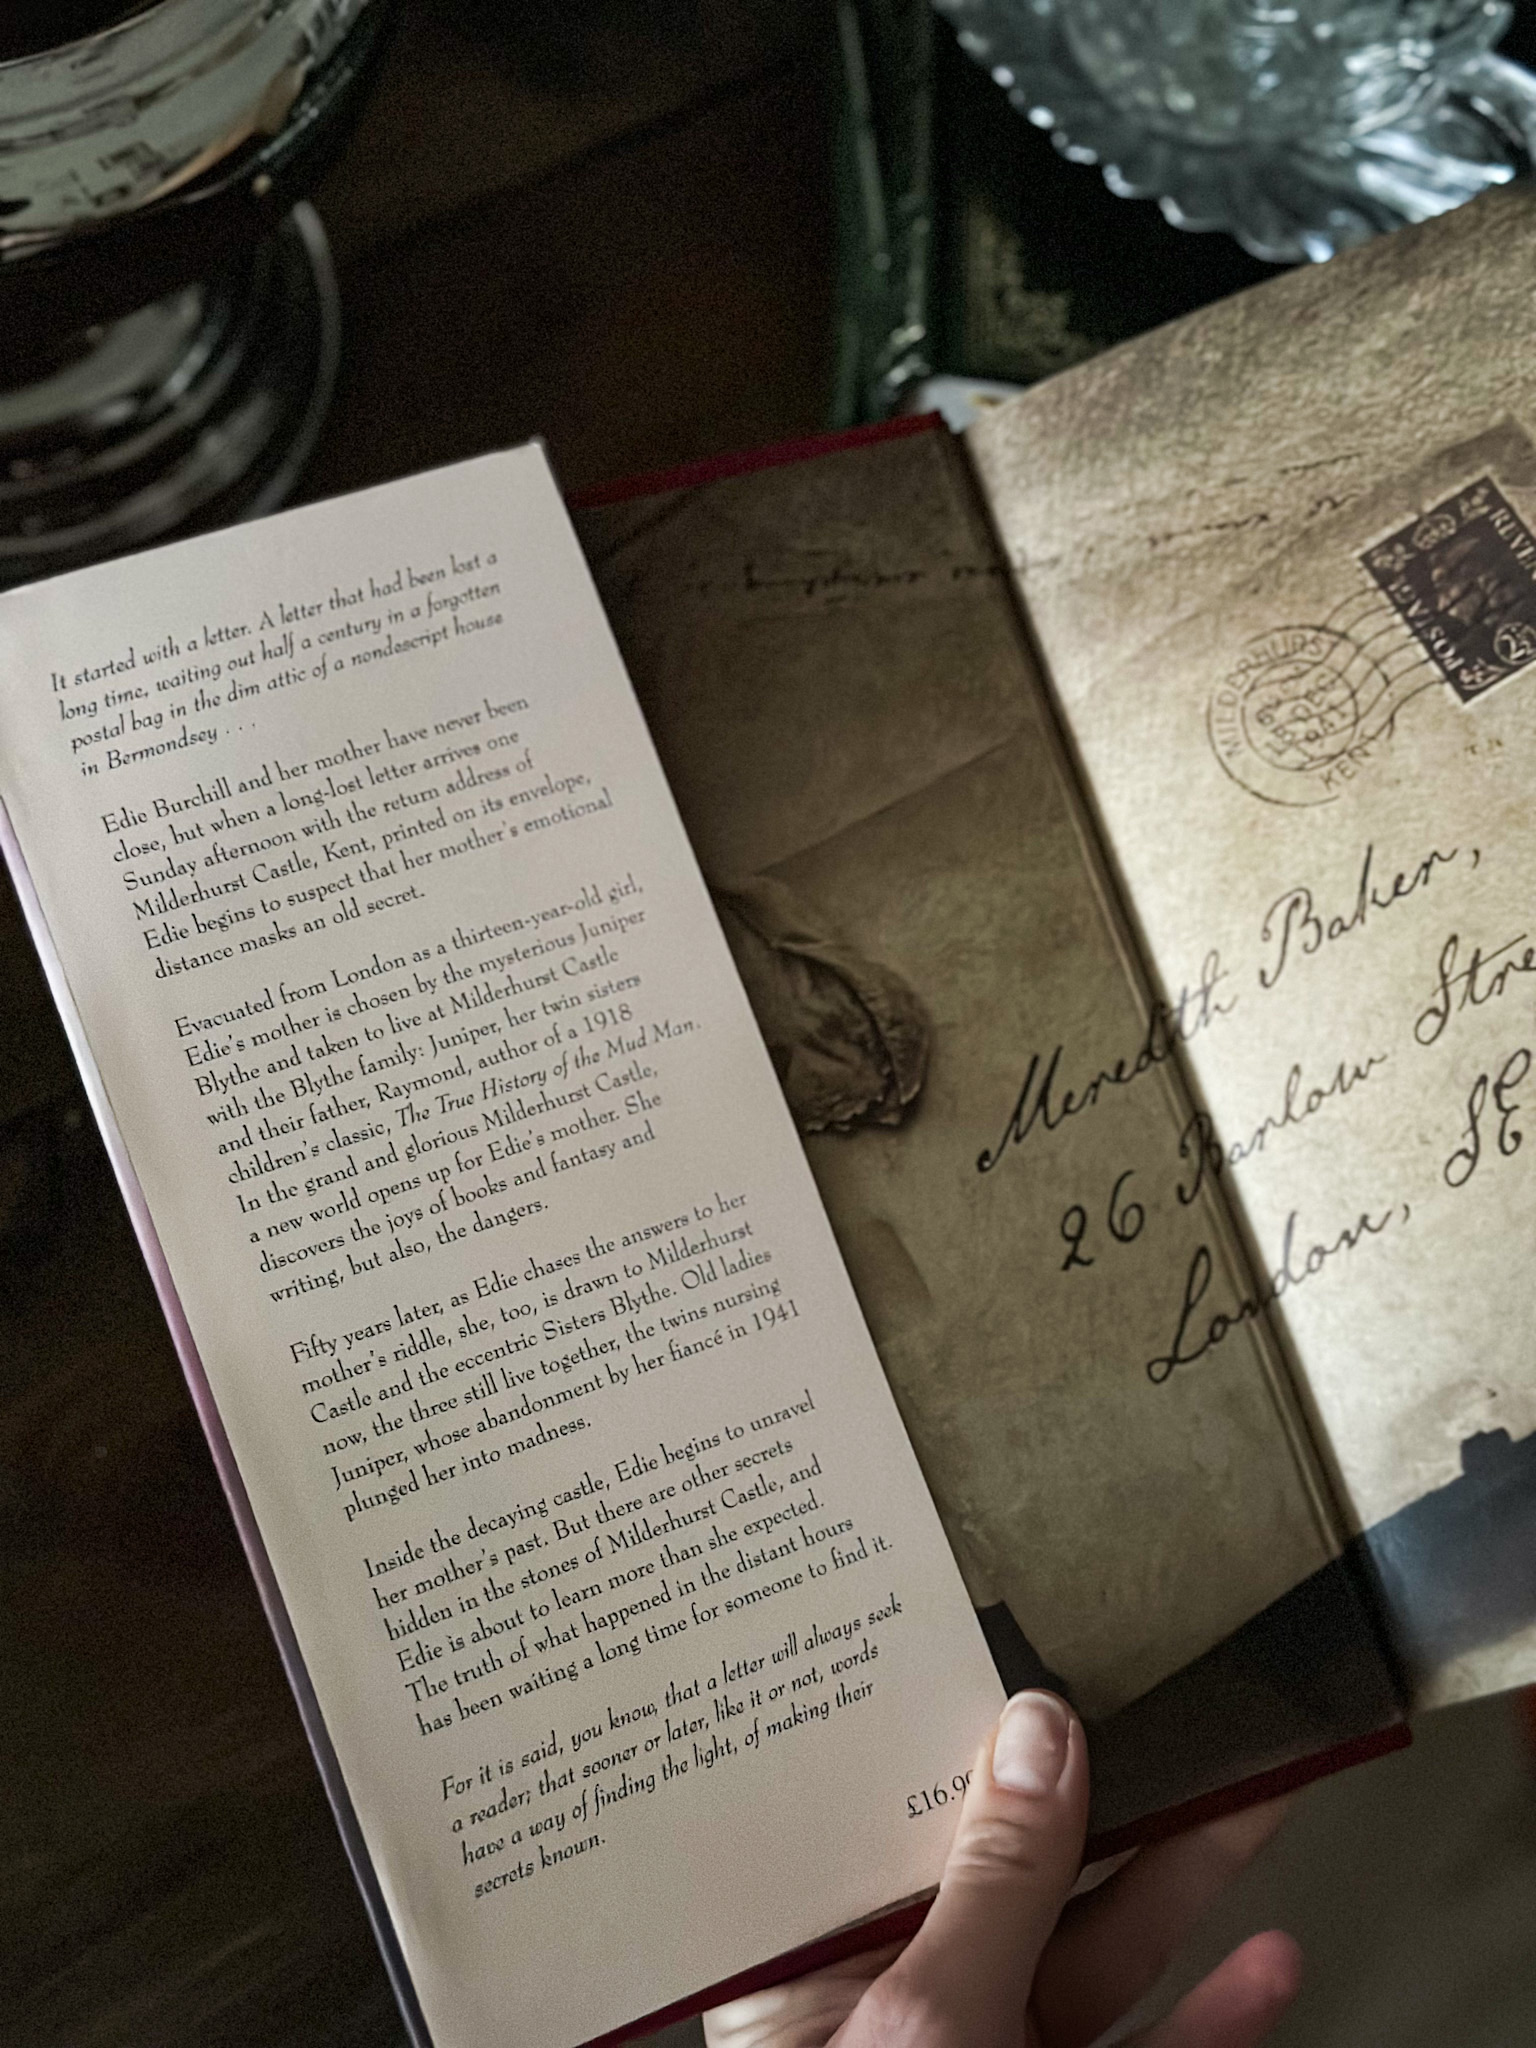 It started with a letter. A letter that had been lost a
long time, waiting out half a century in a forgotten
postal bag in the dim attic of a nondescript house
in Bermondsey . . .
Edie Burchill and her mother have never been
close, but when a long-lost letter arrives one
Sunday afternoon with the return address of
Milderhurst Castle, Kent, printed on its envelope,
Edie begins to suspect that her mother's emotional
distance masks an old secret.
Evacuated from London as a thirteen-year-old girl,
Edie's mother is chosen by the mysterious Juniper
Blythe and taken to live at Milderhurst Castle
with the Blythe family: Juniper, her twin sisters
and their father, Raymond, author of a 1918
children's classic, The True History of the Mud Man.
In the grand and glorious Milderhurst Castle,
a new world opens up for Edie's mother. She
discovers the joys of books and fantasy and
writing, but also, the dangers.
Fifty years later, as Edie chases the answers to her
mother's riddle, she, too, is drawn to Milderhurst
Castle and the eccentric Sisters Blythe. Old ladies
now, the three still live together, the twins nursing
Juniper, whose abandonment by her fiancé in 1941
plunged her into madness.
Inside the decaying castle, Edie begins to unravel
her mother's past. But there are other secrets
hidden in the stones of Milderhurst Castle, and
Edie is about to learn more than she expected.
The truth of what happened in the distant hours
has been waiting a long time for someone to find it.
For it is said, you know, that a letter will always seek
a reader; that sooner or later, like it or not, words
have a way of finding the light, of making their
secrets known.
£16.99
POSTAGE
REVE
2½
MILDERHURST
DEC
1941
KENT
Meredith Baker,
26 Barlow Stre
London, SE